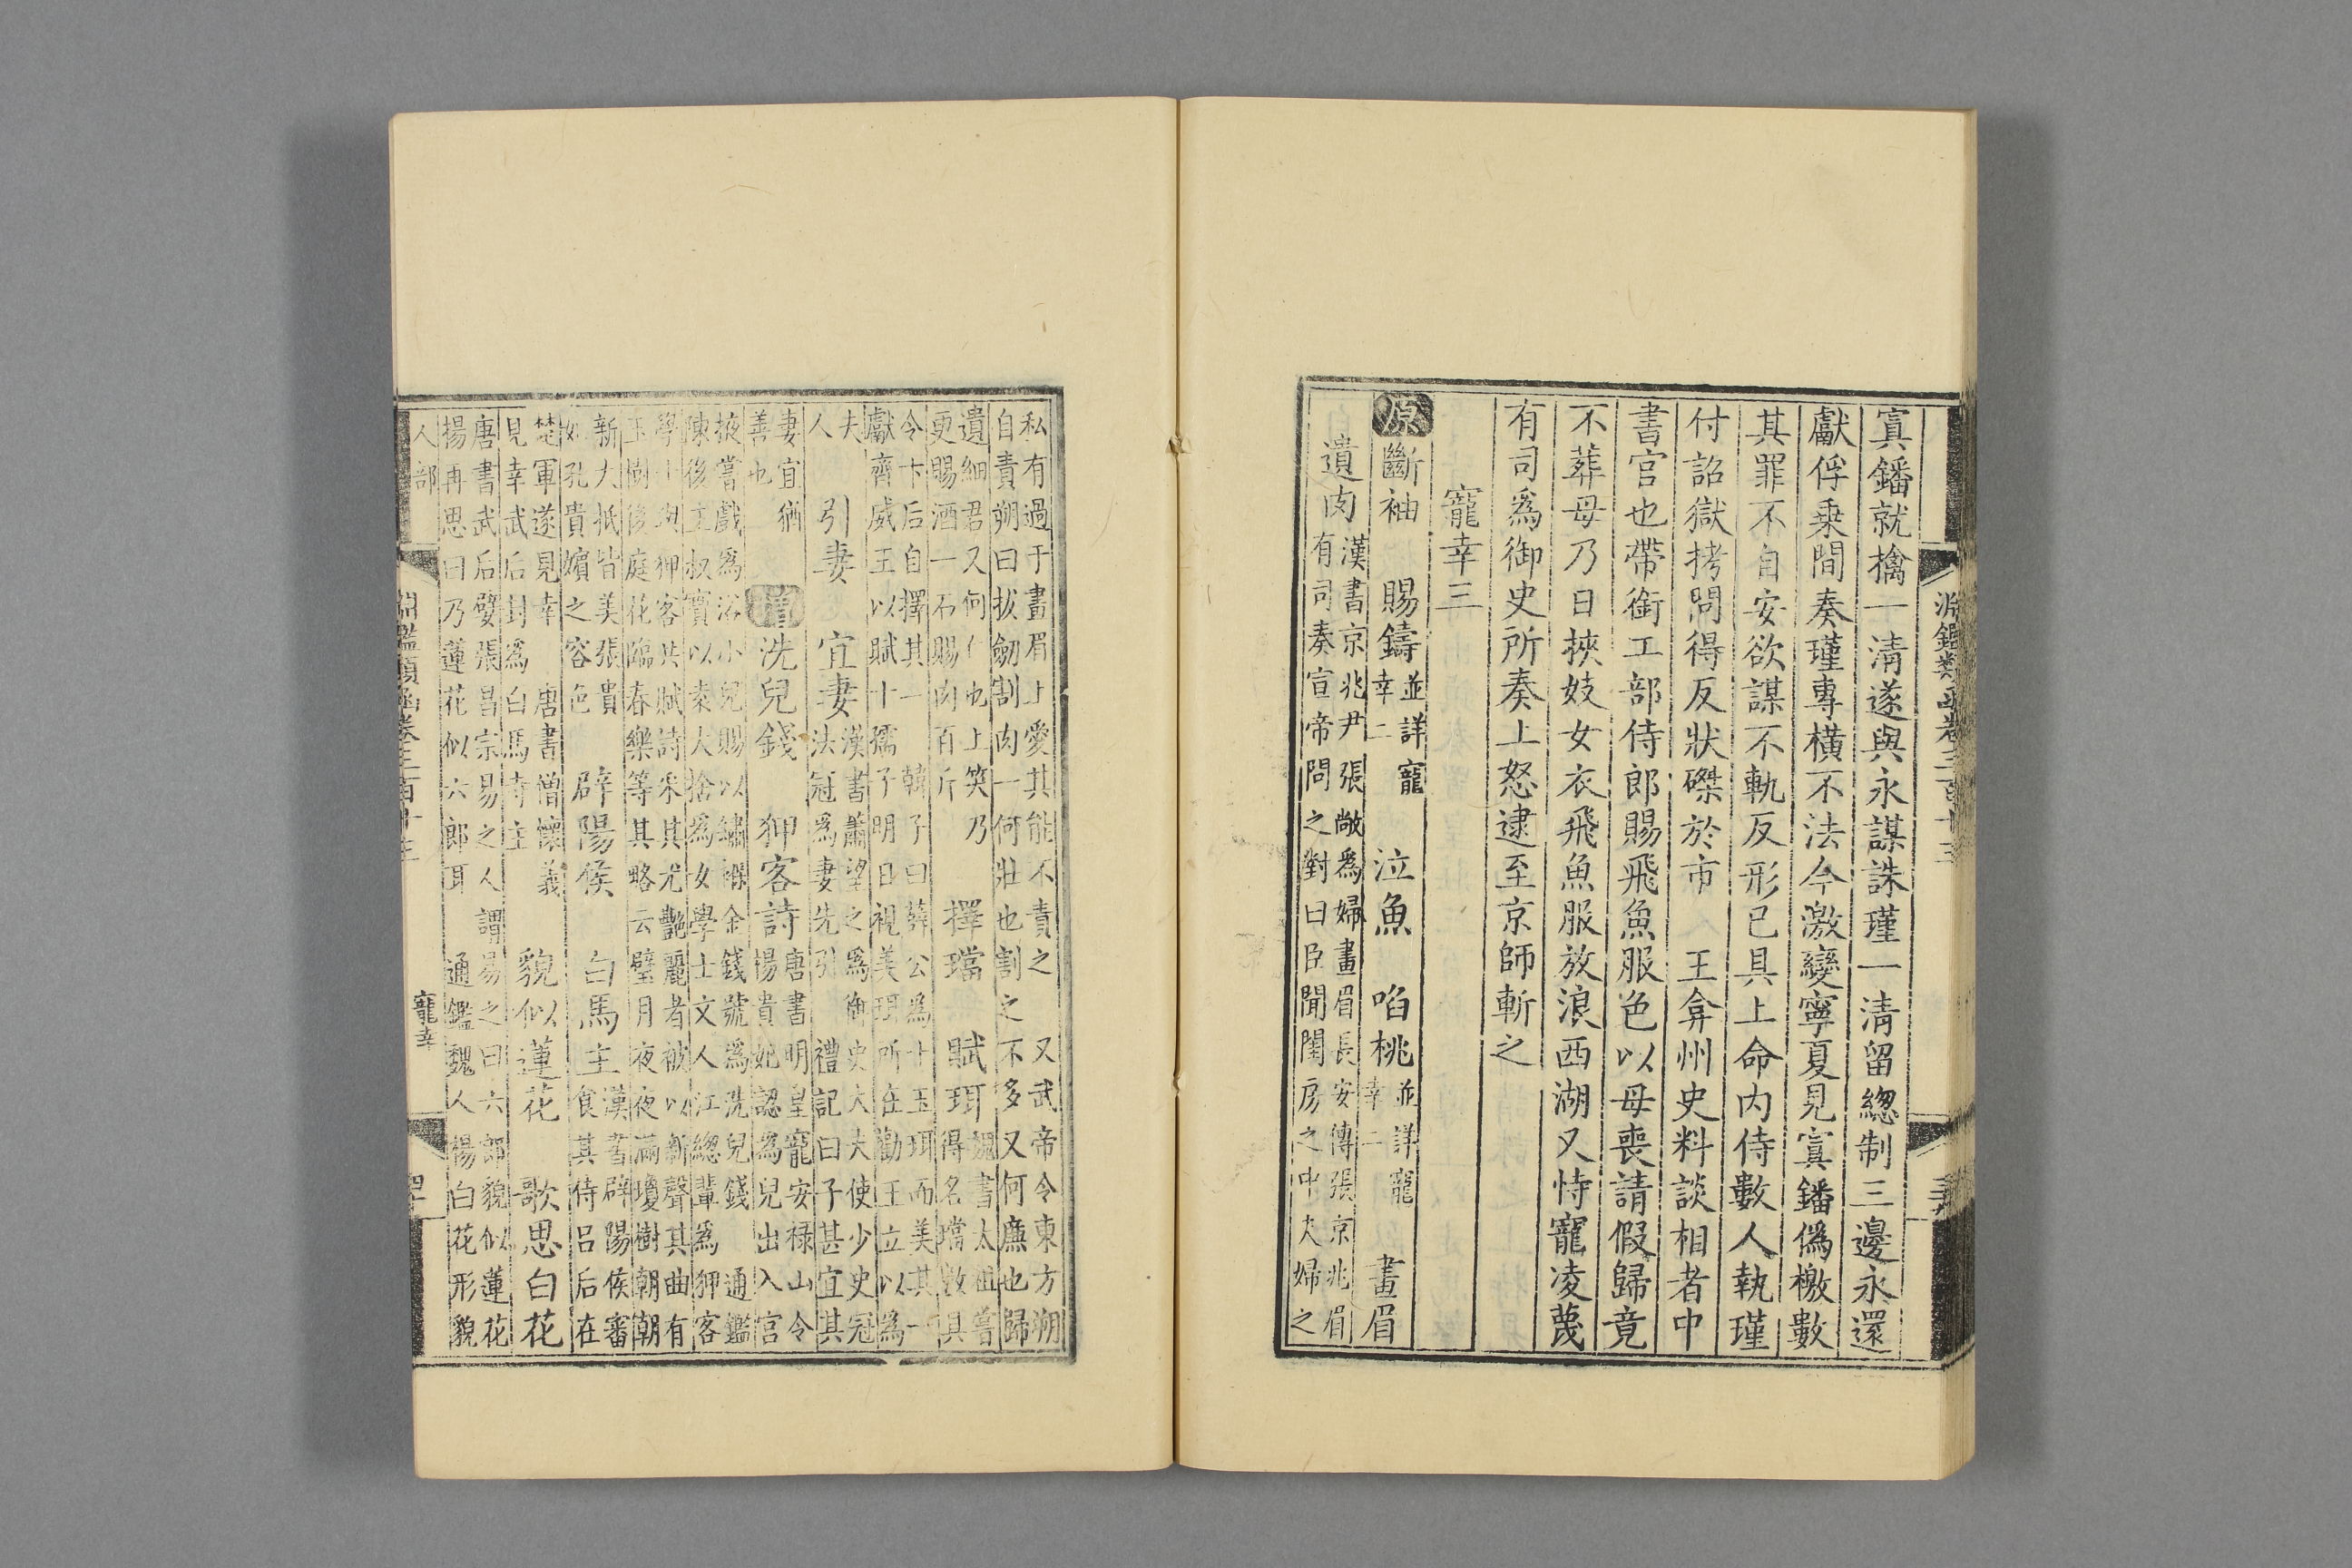 淵鑑類函卷三百十三
寘鐇就擒一清遂與永謀誅瑾一清留緫制三邊永還
獻俘乗間奏瑾專橫不法今激變寧夏見寘鐇僞檄數
其罪不自安欲謀不軌反形已具上命内侍數人執瑾
付詔獄拷問得反狀磔於市 王弇州史料談相者中
書官也帶銜工部侍郎賜飛魚服色以母喪請假歸竟
不葬母乃日挾妓女衣飛魚服放浪西湖又恃寵凌蔑
有司爲御史所奏上怒逮至京師斬之
寵幸三
原 斷袖 賜鑄 並詳寵幸二 泣魚 啗桃 並詳寵幸二 畫眉
漢書京兆尹張敞爲婦畫眉長安傳張京兆眉
遺肉 有司奏宣帝問之對曰臣聞閨房之中夫婦之
私有過于畫眉上愛其能不責之 又武帝令東方朔
自責朔曰拔劒割肉一何壯也割之不多又何廉也歸
遺細君又何仁也上笑乃
更賜酒一石賜肉百斤 擇璫 賦珥 魏書太祖嘗得名璫數具
令卞后自擇其一 韓子曰薛公爲十玉珥而美其一
獻齊威王以賦十孺子明日視美珥所在勸王立以爲
夫人 引妻 宜妻 漢書蕭望之爲御史大夫使少史冠
法冠爲妻先引 禮記曰子甚宜其
妻宜猶善也 增 洗兒錢 狎客詩 唐書明皇寵安祿山令
楊貴妃認爲兒出入宮
掖嘗戲爲浴小兒賜以繡褓金錢號爲洗兒錢 通鑑
陳後主叔寶以袁大捨爲女學士文人江緫輩爲狎客
學士與狎客共賦詩采其尤艷麗者被以新聲其曲有
玉樹後庭花臨春樂等其略云璧月夜夜滿瓊樹朝朝
新大抵皆美張貴
妃孔貴嬪之容色 辟陽侯 白馬主 漢書辟陽侯審
食其侍呂后在
楚軍遂見幸 唐書僧懷義
見幸武后封爲白馬寺主 貌似蓮花 歌思白花
唐書武后嬖張昌宗易之人謂易之曰六郎貌似蓮花
楊再思曰乃蓮花似六郎耳 通鑑魏人楊白花形貌
人部 淵鑑類函卷三百十三 寵幸